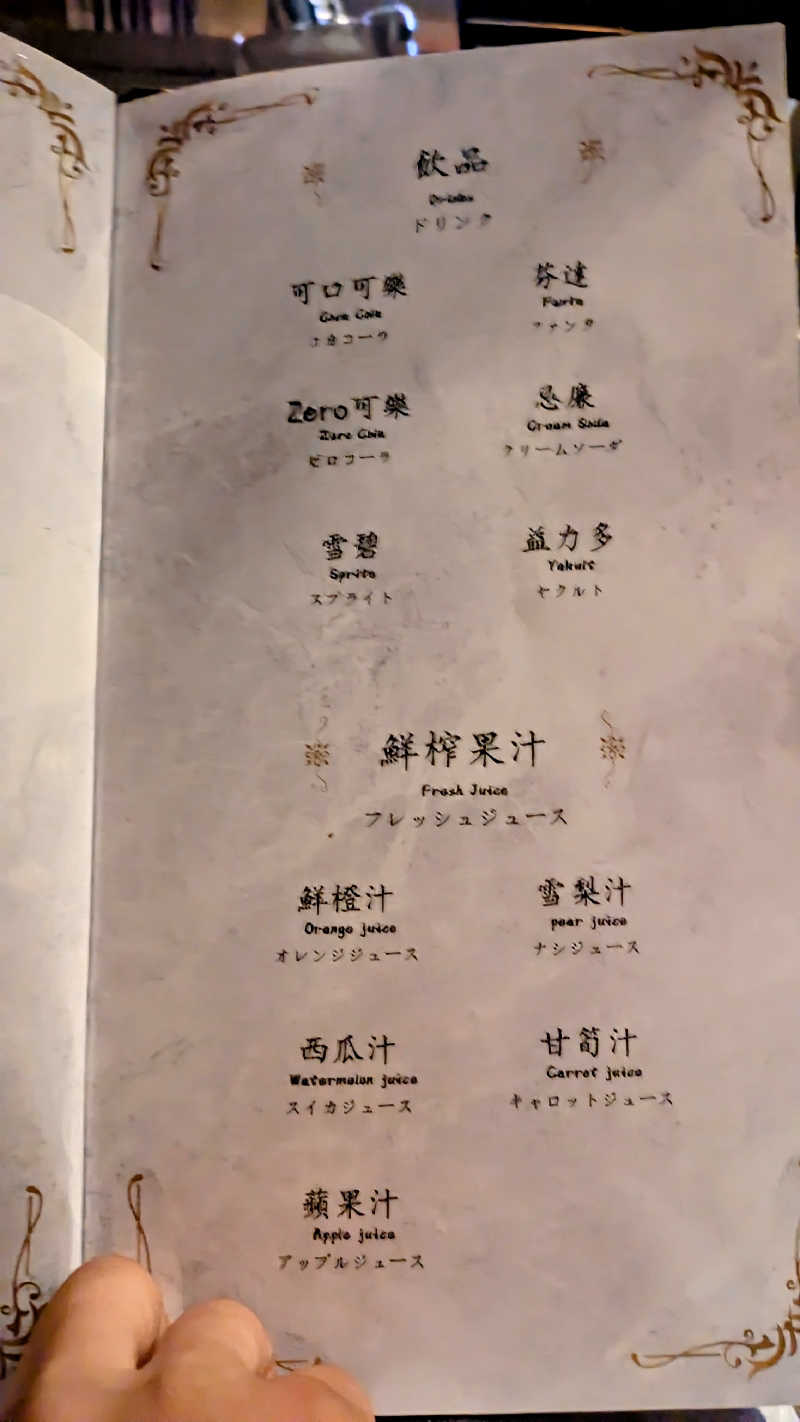 飲品
Drinks
ドリンク
可口可樂
Coca Cola
コカコーラ
芬達
Fanta
ファンタ
Zero可樂
Zero Cola
ゼロコーラ
忌廉
Cream Soda
クリームソーダ
雪碧
Sprite
スプライト
益力多
Yakult
ヤクルト
鮮榨果汁
Fresh Juice
フレッシュジュース
鮮橙汁
Orange juice
オレンジジュース
雪梨汁
pear juice
ナシジュース
西瓜汁
Watermelon juice
スイカジュース
甘筍汁
Carrot juice
キャロットジュース
蘋果汁
Apple juice
アップルジュース